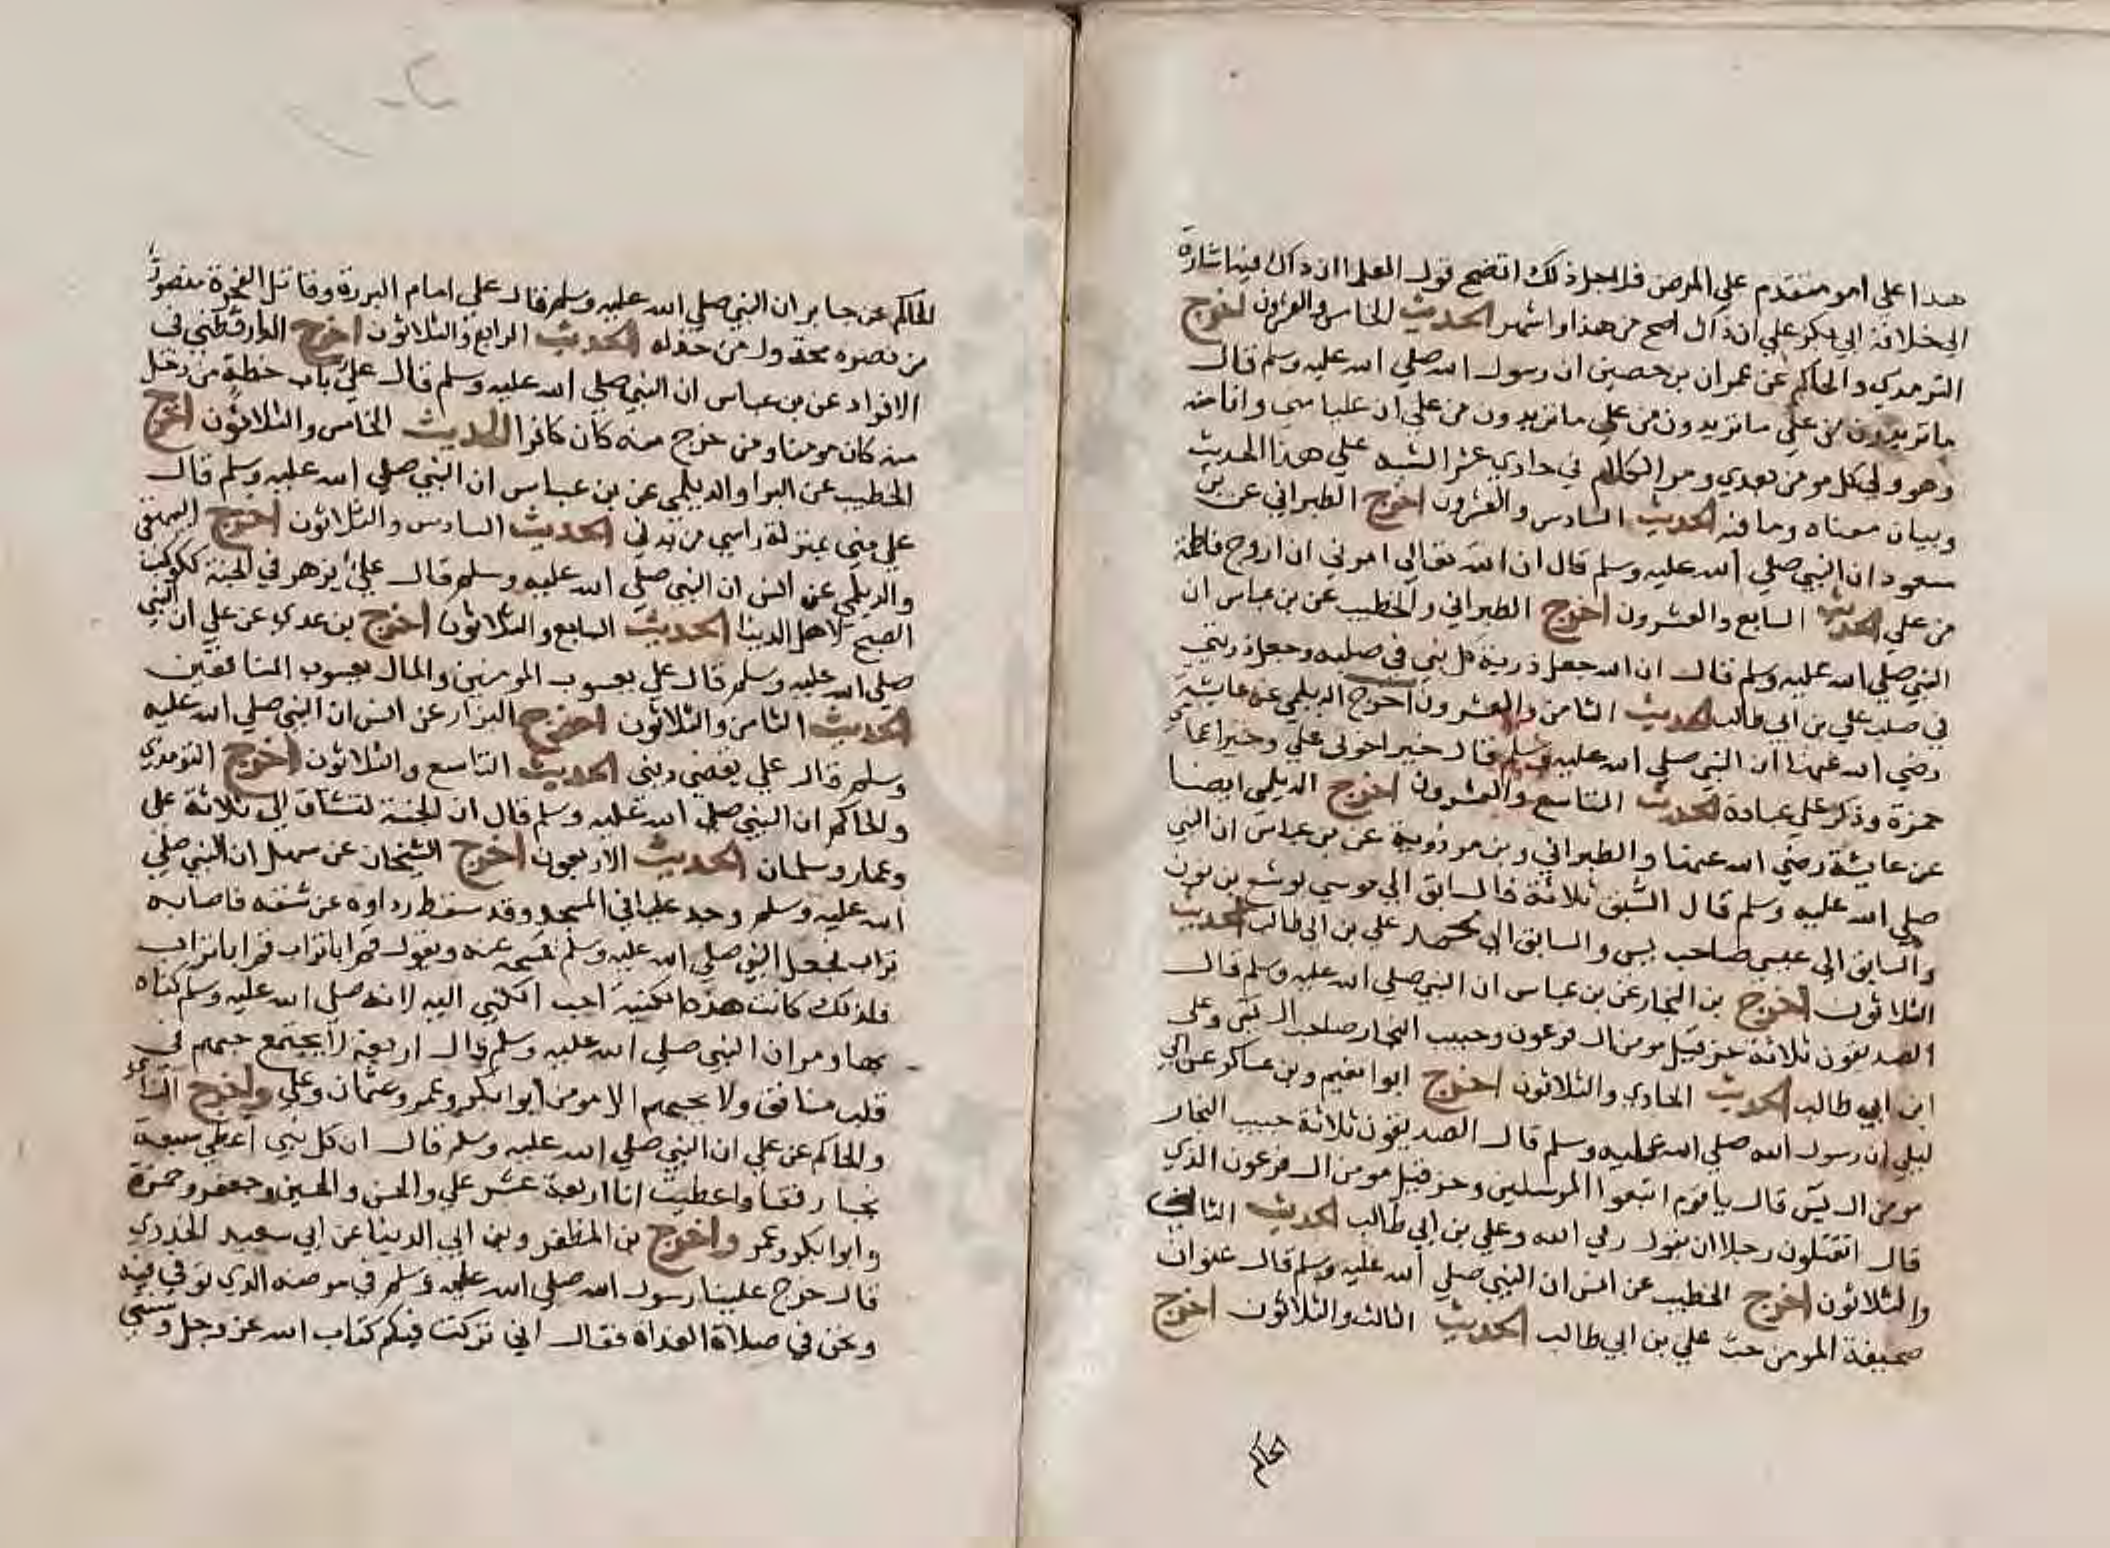 هذا على امر متقدم علي المرض فلاجل ذلك اتضح قول العلما ان ذاك فيه اشارة
الي خلافة ابي بكر علي ان ذاك اصح من هذا واشهر الحديث الخامس والعشرون اخرج
الترمدي والحاكم عن عمران بن حصين ان رسول الله صلي الله عليه وسلم قال
ما تريدون من علي ما تريدون من علي ما تريدون من علي ان عليا مني وانا منه
وهو ولي كل مومن بعدي ومر الكلام في حادي عشر الشبه علي هذا الحديث
وبيان معناه وما فيه الحديث السادس والعشرون اخرج الطبراني عن بن
مسعود ان النبي صلي الله عليه وسلم قال ان الله تعالي امرني ان ازوج فاطمة
من علي الحديث السابع والعشرون اخرج الطبراني والخطيب عن بن عباس ان
النبي صلي الله عليه وسلم قال ان الله جعل ذرية كل نبي في صلبه وجعل ذريتي
في صلب علي بن ابي طالب الحديث الثامن والعشرون اخرج الديلمي عن عايشة
رضي الله عنها ان النبي صلي الله عليه وسلم قال خير اخوتي علي وخير اعمامي
حمزة وذكر علي عبادة الحديث التاسع والعشرون اخرج الديلمي ايضا
عن عايشة رضي الله عنها والطبراني وبن مردوية عن بن عباس ان النبي
صلي الله عليه وسلم قال السبق ثلاثة فالسابق الي موسي يوشع بن نون
والسابق الي عيسي صاحب يس والسابق الي محمد علي بن ابي طالب الحديث
الثلاثون اخرج بن النجار عن بن عباس ان النبي صلي الله عليه وسلم قال
الصديقون ثلاثة حزقيل مومن ال فرعون وحبيب النجار صاحب ال يس وعلي
ابن ابي طالب الحديث الحادي والثلاثون اخرج ابوا نعيم وبن عساكر عن ابي
ليلي ان رسول الله صلي الله عليه وسلم قال الصديقون ثلاثة حبيب النجار
مومن ال يس قال يا قوم اتبعوا المرسلين وحزقيل مومن ال فرعون الذي
قال اتقتلون رجلا ان يقول ربي الله وعلي بن ابي طالب الحديث الثاني
والثلاثون اخرج الخطيب عن انس ان النبي صلي الله عليه وسلم قال عنوان
صحيفة المومن حب علي بن ابي طالب الحديث الثالث والثلاثون اخرج
الحاكم
الحاكم عن جابر ان النبي صلي الله عليه وسلم قال علي امام البررة وقاتل الفجرة منصور
من نصره مخذول من خذله الحديث الرابع والثلاثون اخرج الدارقطني في
الافراد عن بن عباس ان النبي صلي الله عليه وسلم قال علي باب حطة من دخل
منه كان مومنا ومن خرج منه كان كافرا الحديث الخامس والثلاثون اخرج
الخطيب عن البرا والديلمي عن بن عباس ان النبي صلي الله عليه وسلم قال
علي مني بمنزلة راسي من بدني الحديث السادس والثلاثون اخرج البيهقي
والديلمي عن انس ان النبي صلي الله عليه وسلم قال علي يزهر في الجنة ككوكب
الصبح لاهل الدنيا الحديث السابع والثلاثون اخرج بن عدي عن علي ان النبي
صلي الله عليه وسلم قال علي يعسوب المومنين والمال يعسوب المنافقين
الحديث الثامن والثلاثون اخرج البزار عن انس ان النبي صلي الله عليه
وسلم قال علي يقضي ديني الحديث التاسع والثلاثون اخرج الترمدي
والحاكم ان النبي صلي الله عليه وسلم قال ان الجنة لتشتاق الي ثلاثة علي
وعمار وسلمان الحديث الاربعون اخرج الشيخان عن سهل ان النبي صلي
الله عليه وسلم وجد عليا في المسجد وقد سقط رداوه عن شقه فاصابه
تراب فجعل النبي صلي الله عليه وسلم يمسحه عنه ويقول قم ابا تراب قم ابا تراب
فلذلك كانت هذه الكنية احب الكني اليه لانه صلي الله عليه وسلم كناه
بها ومر ان النبي صلي الله عليه وسلم قال اربعة لا يجتمع حبهم في
قلب منافق ولا يحبهم الا مومن ابوا بكر وعمر وعثمان وعلي واخرج النساي
والحاكم عن علي ان النبي صلي الله عليه وسلم قال ان كل نبي اعطي سبعة
نجبا رفقا واعطيت انا اربعة عشر علي والحسن والحسين وجعفر وحمزة
وابوا بكر وعمر واخرج بن المظفر وبن ابي الدنيا عن ابي سعيد الخدري
قال خرج علينا رسول الله صلي الله عليه وسلم في مرضه الذي توفي فيه
ونحن في صلاة الغداة فقال اني تركت فيكم كتاب الله عز وجل وسنتي